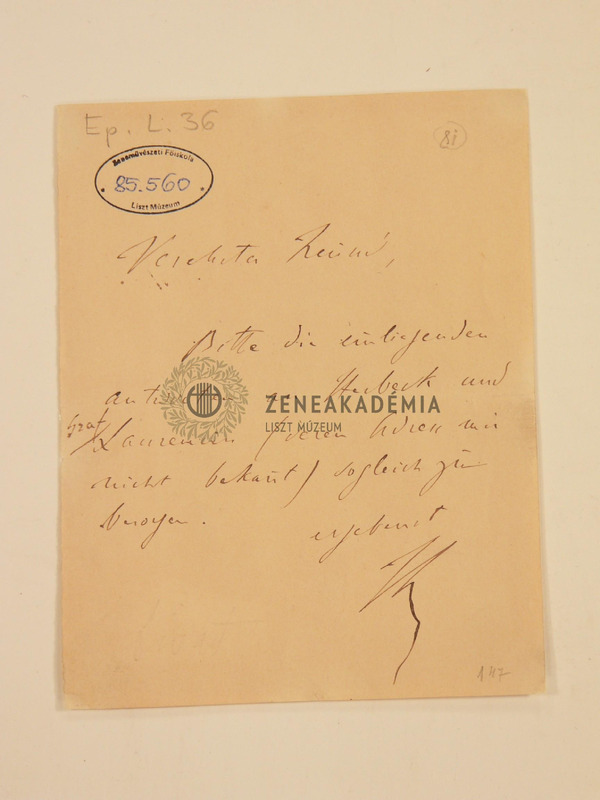 Ep. L. 36
8i
Zeneművészeti Főiskola
85.560
Liszt Múzeum
Verehrter Freund,
Bitte die einliegenden
Herbeck und
ZENEAKADÉMIA
LISZT MÚZEUM
Graf
Laurencin (deren Adresse mir
nicht bekañt) sogleich zu
besorgen.
ergebenst
147